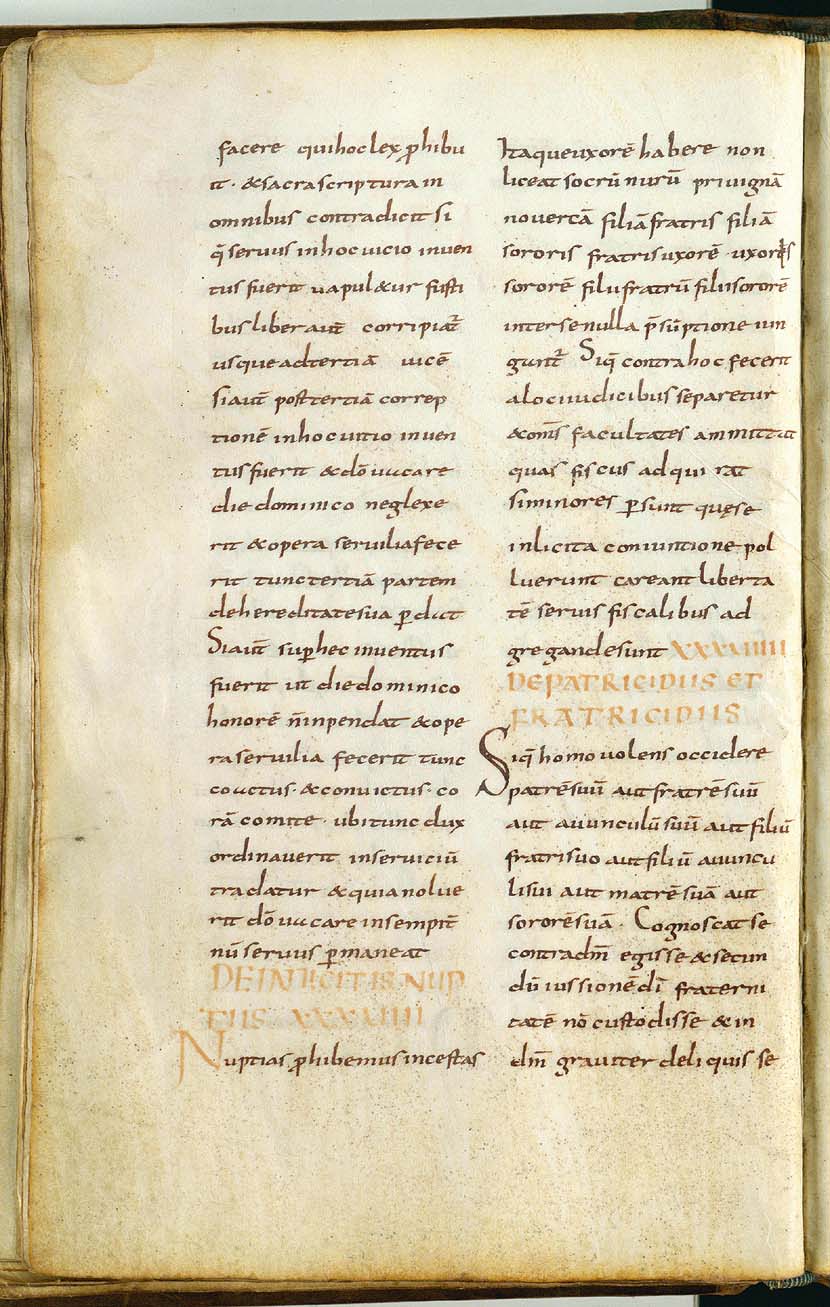 facere quihoc lex ꝓhibu
it · & sacra scriptura in
omnibus contradicit si
q̄ seruus inhoc uicio inuen
tus fuerit uapul&ur fusti
bus liber aut̄ corripiat̄
usque adtertiā uicē
si aut̄ post tertiā correp
tionē inhoc uitio inuen
tus fuerit & dō uacare
die dominico neglexe
rit & opera seruilia fece
rit tunc tertiā partem
de hereditate sua ꝑdat
Si aut̄ suꝑ hec inuentus
fuerit ut die dominico
honorē n̄ inpendat & ope
ra seruilia fecerit tunc
coactus · & conuictus · co
rā comite · ubi tunc dux
ordinauerit inseruiciū
tradatur & quia nolue
rit dō uacare insempit̄
nū seruus ꝑmaneat
DE INLICITIS NUP
TIIS XXXVIIII
Nuptias ꝓhibemus incestas
Itaque uxorē habere non
liceat socrū nurū priuignā
nouercā filiā fratris filiā
sororis fratris uxorē uxoris
sororē filii fratrū filii sororē
inter se nulla p̄sūptione iun
gunt̄ Siq̄ contra hoc fecerit
a loci iudicibus separetur
& om̄s facultates ammittat
quas fiscus adquirat
si minores ꝑsunt quęse
inlicita coniuntione pol
luerunt careant liberta
tē seruis fiscalibus ad
gregande sunt XXXVIIII
DE PATRICIDIIS ET
FRATRICIDIIS
Siq̄ homo uolens occidere
patrē suū aut fratrē suū
aut auunculū suū aut filiū
fratri suo aut filiū auuncu
li sui aut matrē suā aut
sororē suā · Cognoscat se
contra dm̄ egisse & secun
dū iussionē dī fraterni
tatē nō custodisse & in
dm̄ grauiter deliquisse